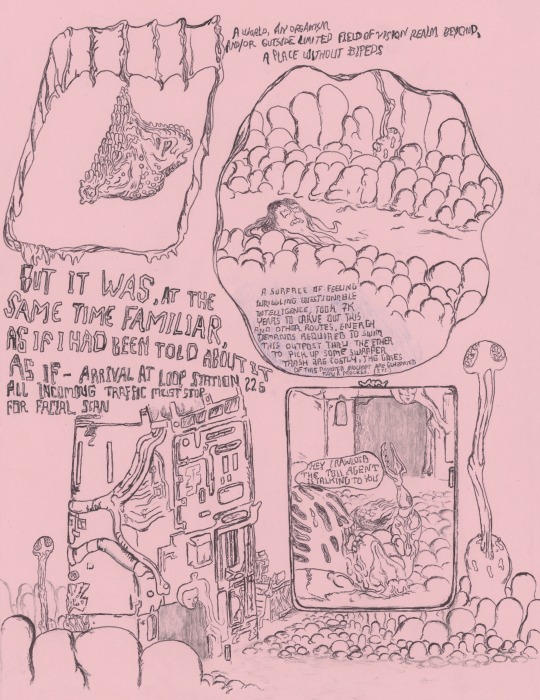 A WORLD, AN ORGANISM
AND/OR OUTSIDE LIMITED FIELD OF VISION REALM BEYOND,
A PLACE WITHOUT BIPEDS
BUT IT WAS, AT THE
SAME TIME FAMILIAR
AS IF I HAD BEEN TOLD ABOUT IT
AS IF - ARRIVAL AT LOOP STATION 226
ALL INCOMING TRAFFIC MUST STOP
FOR FACIAL SCAN
A SURFACE OF FEELING
WRIGGLING QUESTIONABLE
INTELLIGENCE, TOOK 7K
YEARS TO CARVE OUT THIS
AND OTHER ROUTES, ENERGY
DEMANDS REQUIRED TO SWIM
THIS OUTPOST THRU THE ETHER
TO PICK UP SOME
TRASH ARE COSTLY, THE GATES
OF THIS ARE
HEY CRAWLER
THE TOLL AGENT
IS TALKING TO YOU